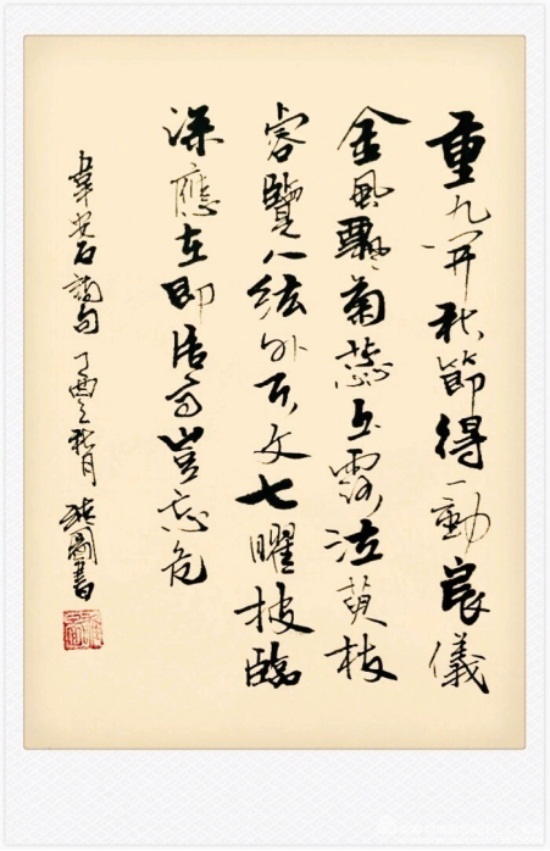 重九開秋節得一動宸儀
金風飄菊蕊玉露泫萸枝
睿覽八紘外天文七曜披臨
深應在即居高豈忘危
韋安石詩句 丁酉之秋月 圖書